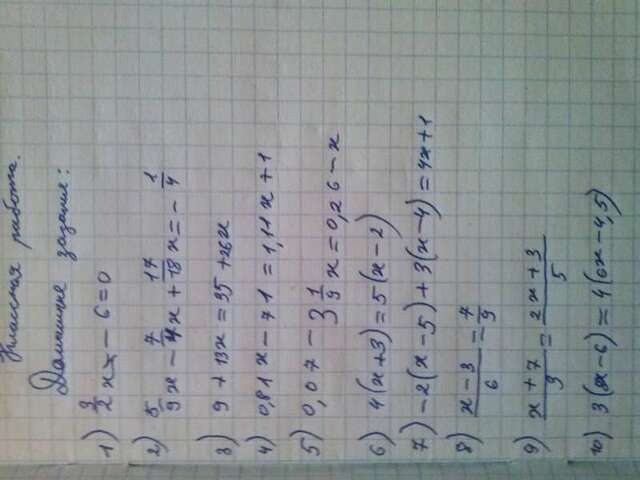 Классная работа.
Домашние задания:
1) 3/2 x - 6 = 0
2) 5/9 x - 7/4 x + 17/18 x = - 1/4
3) 9 + 13x = 35 + 26x
4) 0,81x - 71 = 1,11x + 1
5) 0,07 - 3 1/9 x = 0,26 - x
6) 4(x+3) = 5(x-2)
7) -2(x-5) + 3(x-4) = 4x+1
8) x-3/6 = 7/9
9) x+7/3 = 2x+3/5
10) 3(x-6) = 4(6x-4,5)